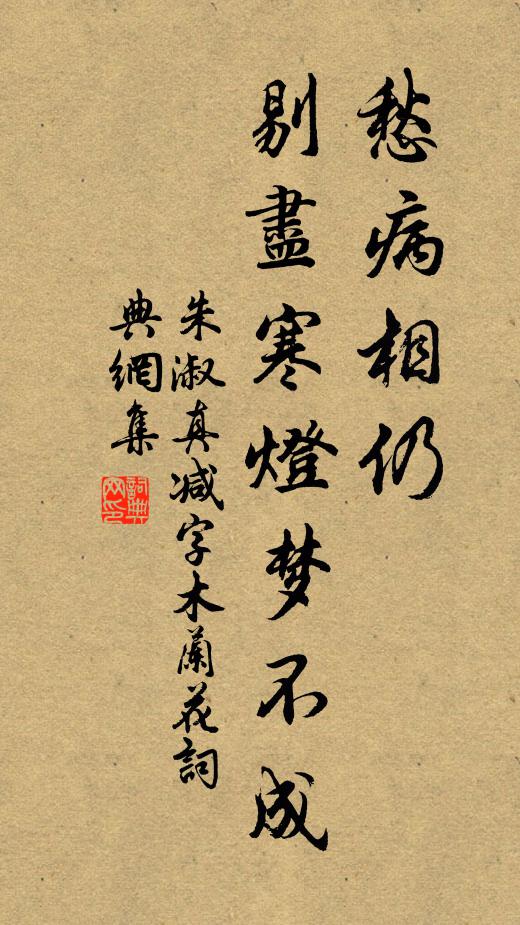 愁病相仍
剔盡寒燈梦不成
朱淑真减字木蘭花詞
典網集
詞典网印